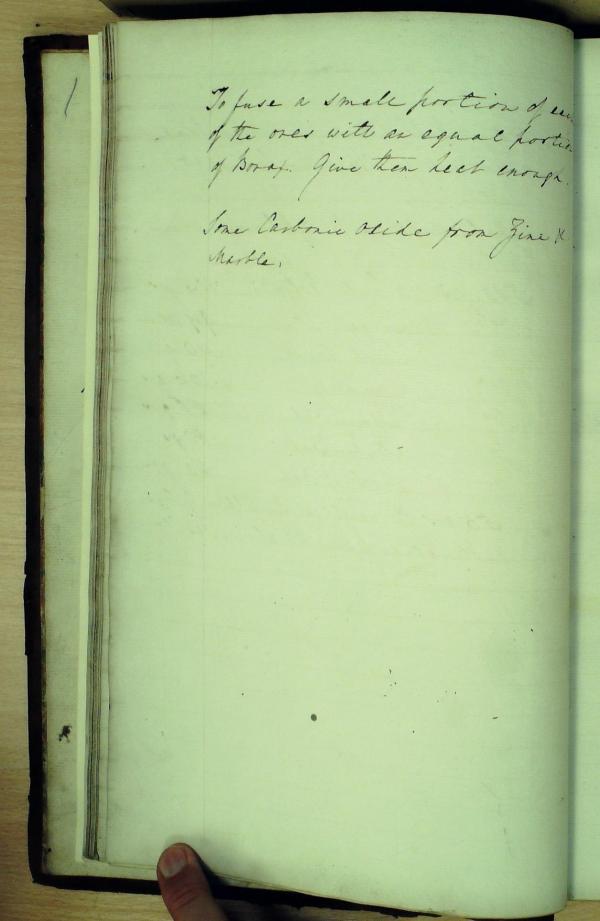 To fuse a small portion of each
of the ores with an equal portion
of Borax. Give them heat enough.
Some Carbonic Oxide from Zinc &
Marble.